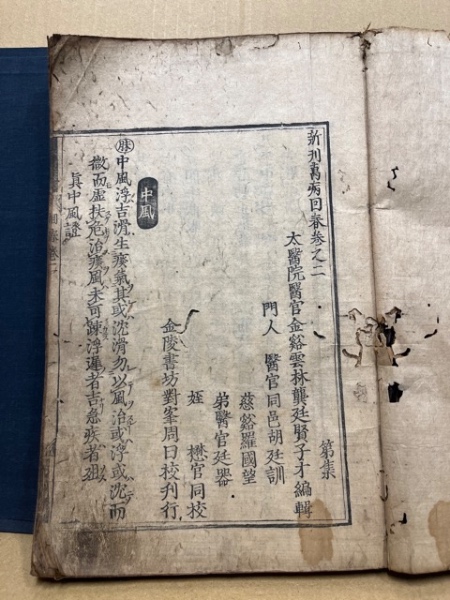 新刊萬病回春卷之二
太醫院醫官金谿雲林龔廷賢子才編輯
門人 醫官同邑胡廷訓
慈谿羅國望
弟醫官廷器
姪 懋官同校
金陵書坊對峯周曰校刊行
中風
脉
中風浮吉滑生痰氣其或沈滑勿以風治或浮或沈而
微而虛扶危治痰風未可踈浮遲者吉急疾者殂
眞中風證